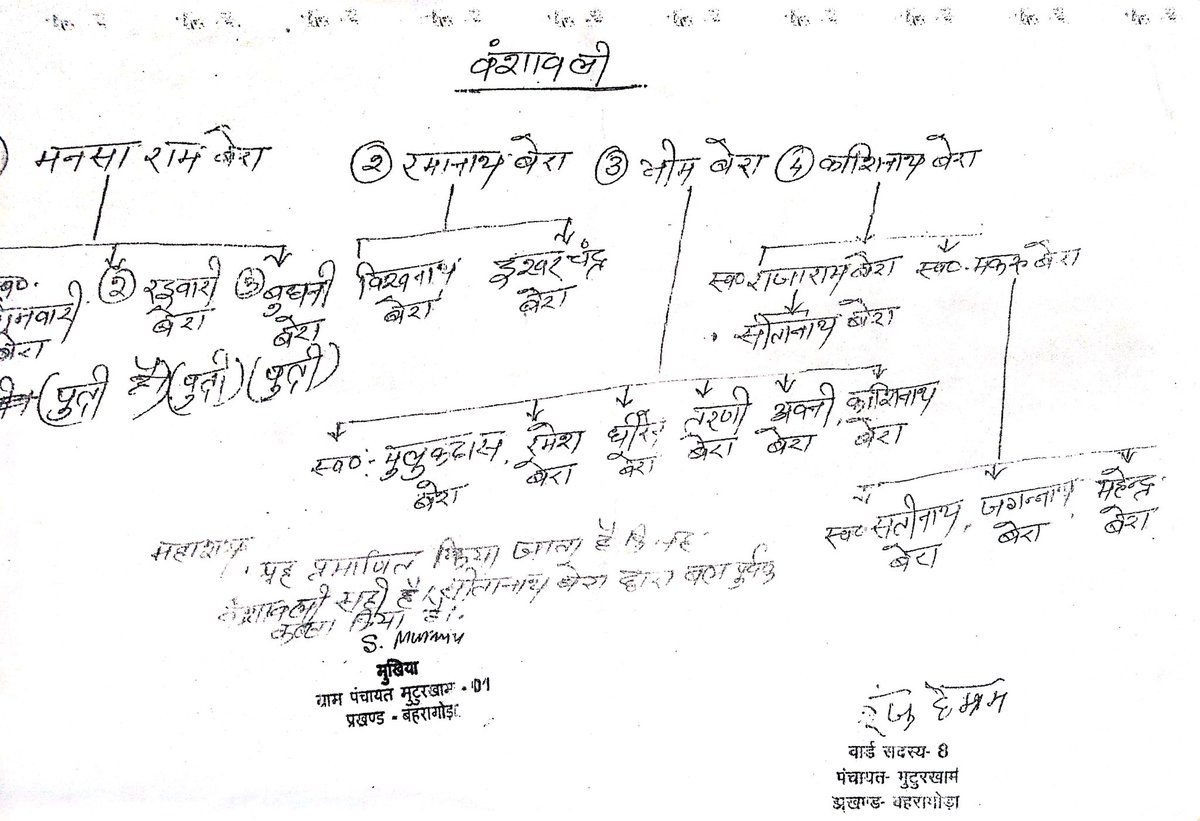 वंशावली
मनसा राम बेरा ② रमानाथ बेरा ③ भीम बेरा ④ काशिनाथ बेरा
स्व०. ② रइवारी ③ बुधनी विश्वनाथ ईश्वर चंद्र स्व० राजाराम बेरा स्व०. मकरु बेरा
बेरा बेरा बेरा बेरा बेरा
सीतानाथ बेरा
(पुत्री) (पुत्री) (पुत्री)
स्व०:- मुलुकदास, रमेश तरणी अवनी काशिनाथ
बेरा बेरा बेरा बेरा बेरा बेरा
स्व० सतीनाथ, जगन्नाथ, महेन्द्र
बेरा बेरा बेरा
महाशय,
यह प्रमाणित किया जाता है कि यह
वंशावली सही है। सीतानाथ बेरा द्वारा बल पूर्वक
कब्जा किया है।
S. Murmu
मुखिया
ग्राम पंचायत मुटुरखाम - 01
प्रखण्ड - बहरागोड़ा
हेम्ब्रम
वार्ड सदस्य- 8
पंचायत- मुटुरखाम
प्रखण्ड- बहरागोड़ा